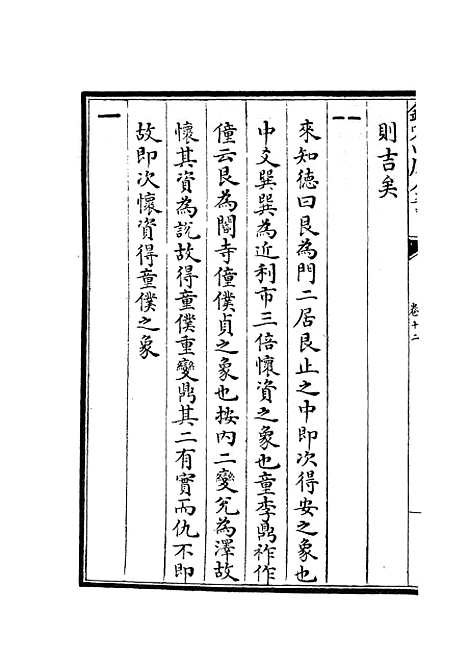 卷十二
則吉矣
--
來知德曰艮為門二居艮止之中即次得安之象也
中爻巽巽為近利市三倍懷資之象也童李鼎祚作
僮云艮為閽寺僮僕貞之象也按内二變兊為澤故
懷其資為說故得童僕重變鼎其二有實而仇不即
故即次懷資得童僕之象
一